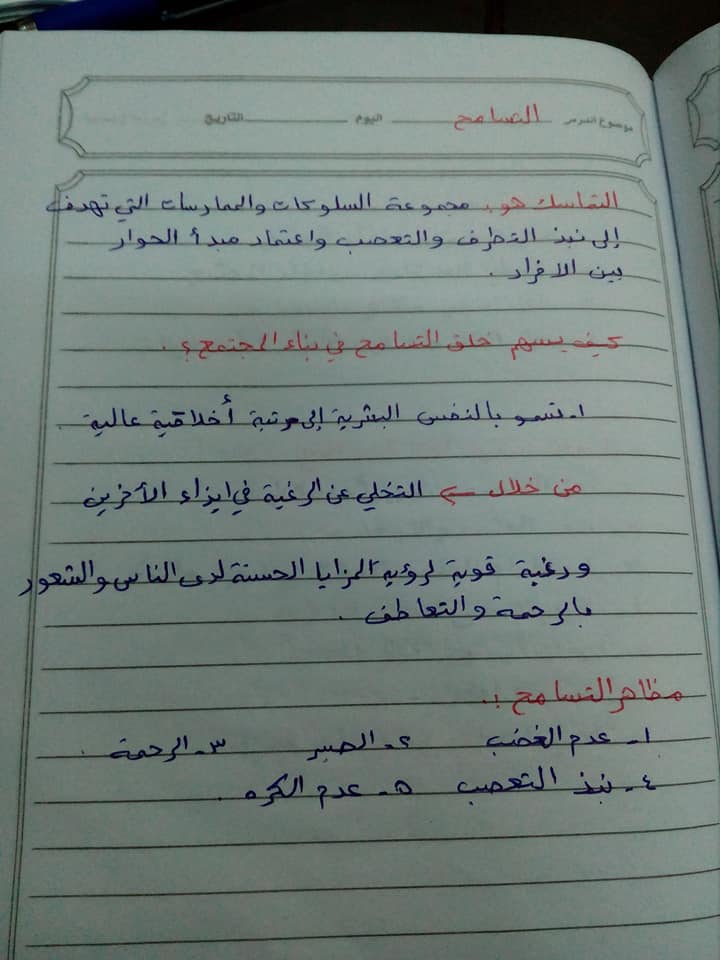 موضوع الدرس التسامح اليوم التاريخ
التماسك هو : مجموعة السلوكات والممارسات التي تهدف
إلى نبذ التطرف والتعصب واعتماد مبدأ الحوار
بين الافراد .
كيف يسهم خلق التسامح في بناء المجتمع ؟ .
١- تسمو بالنفس البشرية إلى مرتبة أخلاقية عالية .
من خلال ← التخلي عن الرغبة في ايذاء الأخرين
ورغبة قوية لرؤية المزايا الحسنة لدى الناس والشعور
بالرحمة والتعاطف .
مظاهر التسامح :.
١- عدم الغضب ٢- الصبر ٣- الرحمة .
٤- نبذ التعصب ٥- عدم الكره .